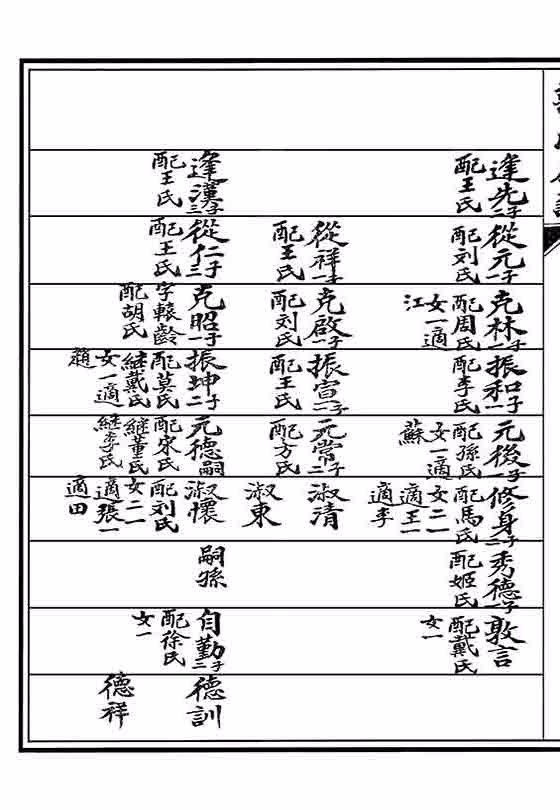 逢先二子
配王氏
逢漢三子
配王氏
從元一子
配刘氏
從祥一子
配王氏
從仁三子
配王氏
克林一子
配周氏
女一適
江
克啟一子
配刘氏
克昭一子
字轅齡
配胡氏
振和一子
配李氏
振宣二子
配王氏
振坤二子
配莫氏
継戴氏
女一適
趙
元後一子
配孫氏
女一適
蘇
元常二子
配方氏
元德嗣
配宋氏
継董氏
継李氏
修身二子
配馬氏
女二一
適王一
適李
淑清
淑東
淑懷
配刘氏
女二一
適張一
適田
秀德一子
配姬氏
嗣孫
敦言
配戴氏
女一
自勤二子
配徐氏
女一
德訓
德祥